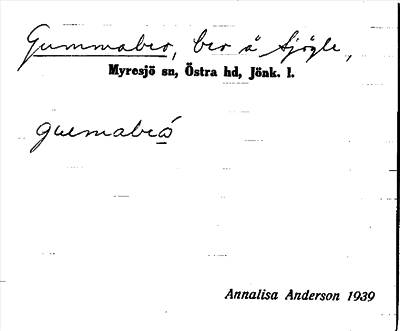 Gummabro, bro å Sjögle,
Myresjö sn, Östra hd, Jönk. l.
gummabró
Annalisa Anderson 1939